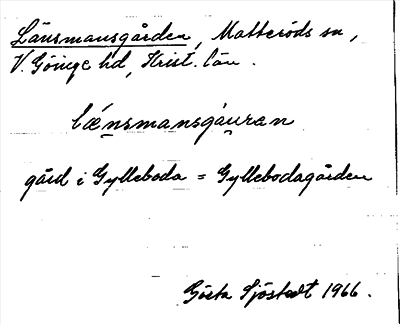 Länsmansgården, Matteröds sn,
V. Göinge hd, Krist. län.
lǽnsmansgáuran
gård i Gylleboda = Gyllebodagården
Gösta Sjöstedt 1966.